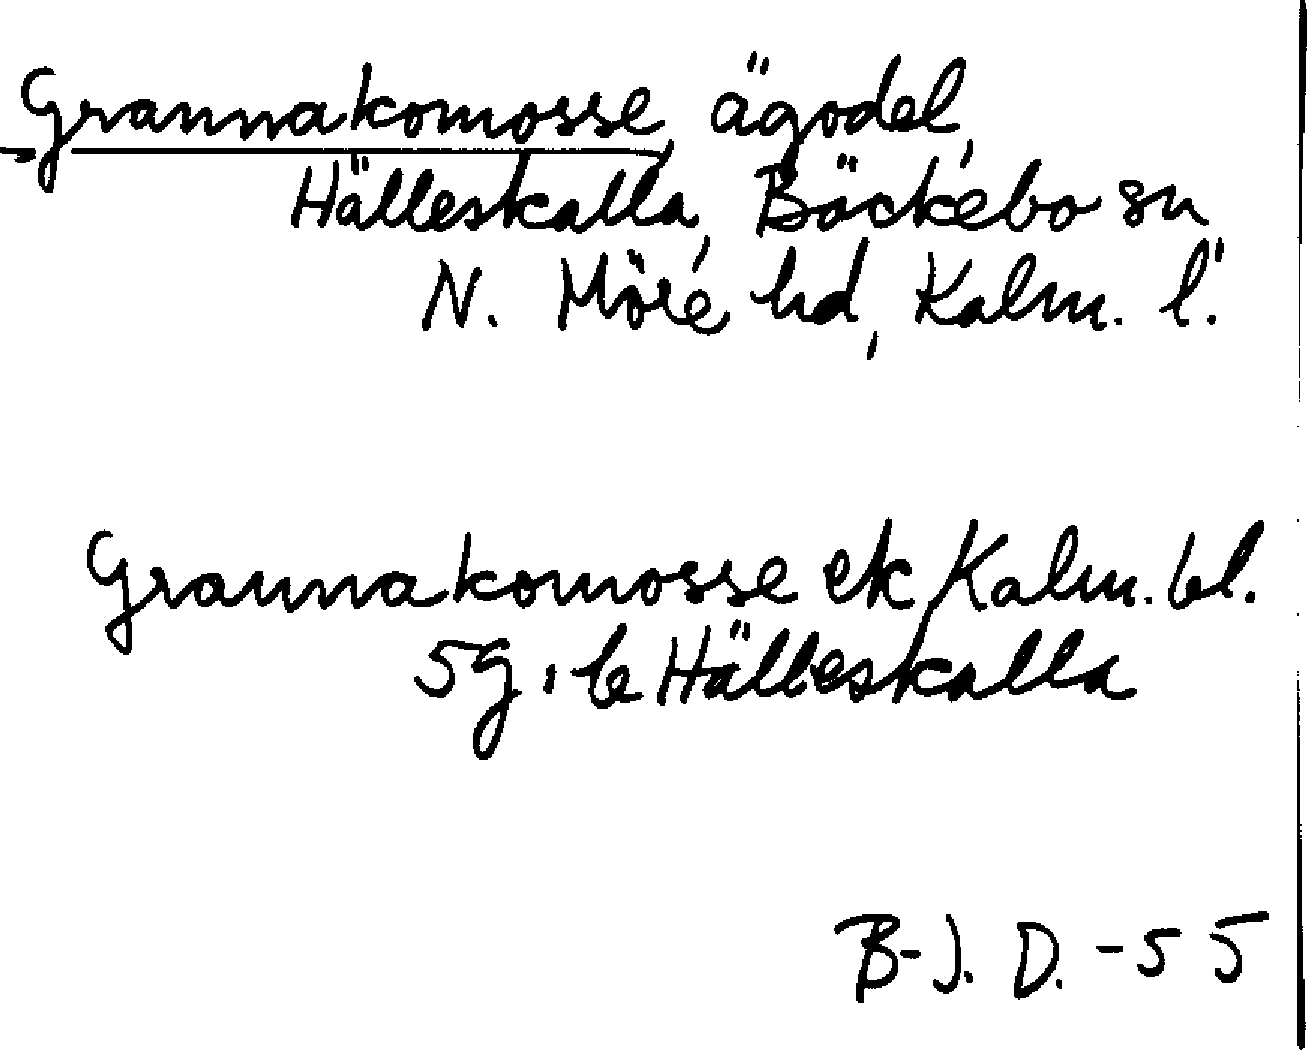 Grannakomosse, ägodel,
Hälleskalla, Bäckebo sn
N. Möre hd, Kalm. l.
Grannakomosse ek Kalm. bl.
5g, b Hälleskalla
B-J. D. -55